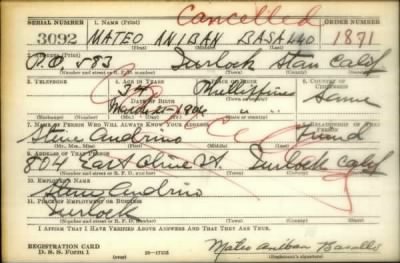 Cancelled
SERIAL NUMBER 1. NAME (Print) ORDER NUMBER
3092 MATEO ANIBAN BASALLO 1871
(First) (Middle) (Last)
2. ADDRESS (Print)
P.O. 583 Turlock Stan Calif
(Number and street or R. F. D. number) (Town) (County) (State)
3. TELEPHONE 4. AGE IN YEARS 5. PLACE OF BIRTH 6. COUNTRY OF CITIZENSHIP
34 Phillippine Same
DATE OF BIRTH
March 15 1904
(Exchange) (Number) (Mo.) (Day) (Yr.) (State or country)
7. NAME OF PERSON WHO WILL ALWAYS KNOW YOUR ADDRESS 8. RELATIONSHIP OF THAT PERSON
Steve Andrino Friend
(Mr., Mrs., Miss) (First) (Middle) (Last)
9. ADDRESS OF THAT PERSON
804 East Olive St. Turlock Calif
(Number and street or R. F. D. number) (Town) (County) (State)
10. EMPLOYER'S NAME
Steve Andrino
11. PLACE OF EMPLOYMENT OR BUSINESS
Turlock
(Number and street or R. F. D. number) (Town) (County) (State)
I AFFIRM THAT I HAVE VERIFIED ABOVE ANSWERS AND THAT THEY ARE TRUE.
REGISTRATION CARD
D. S. S. Form 1 16—17105 Mateo Aniban Basallo
(Registrant's signature)